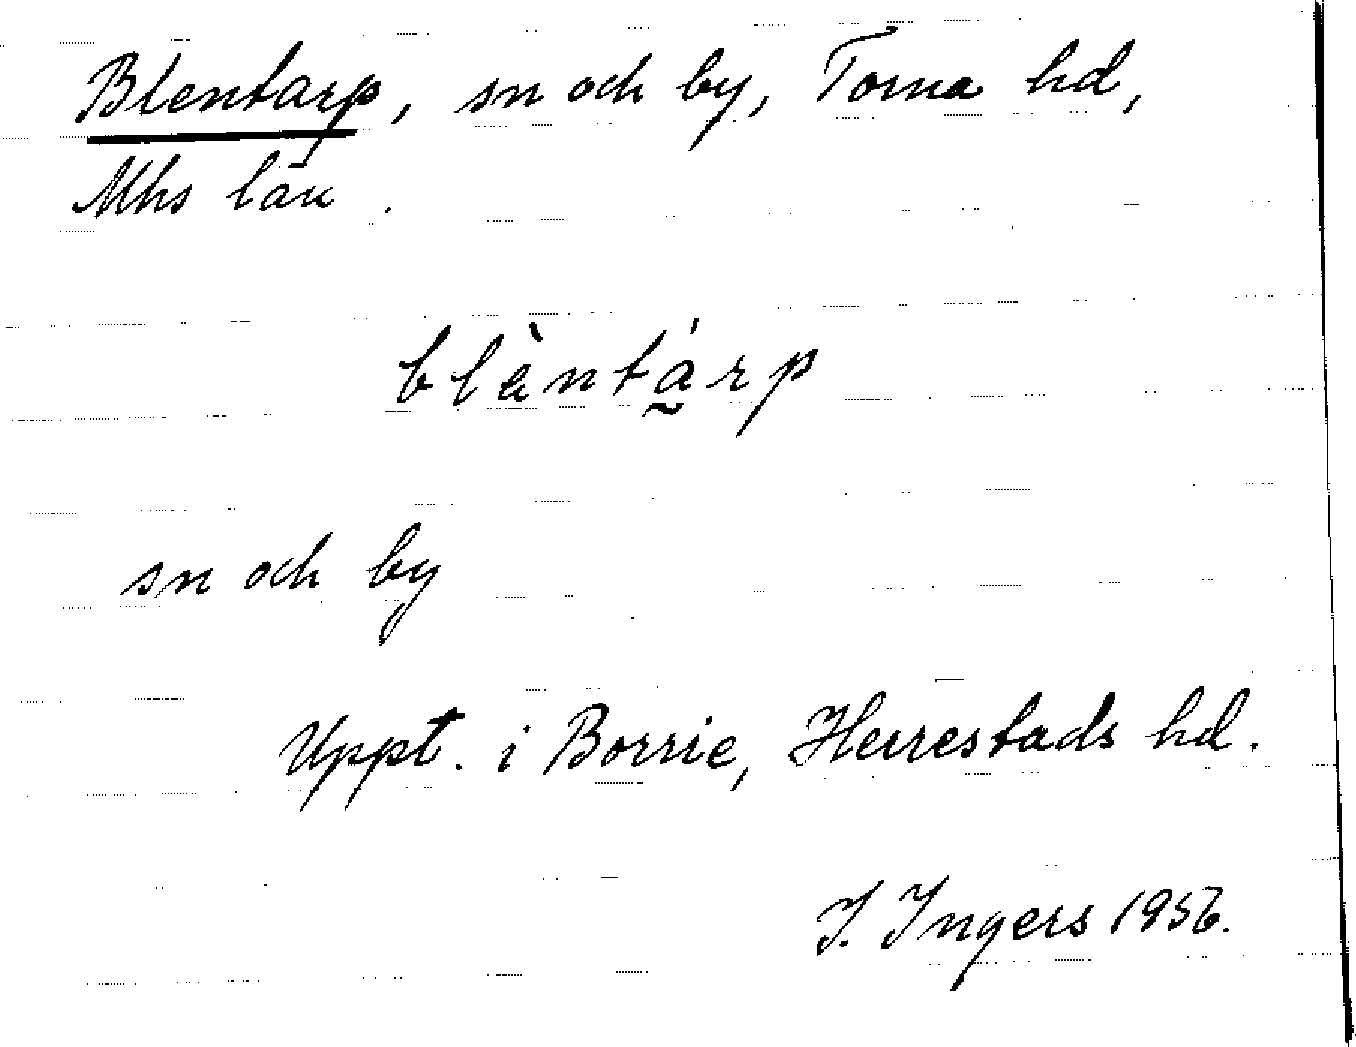 Blentarp, sn och by, Torna hd,
Mhs län.
blèntá̰rp
sn och by
Uppt. i Borrie, Herrestads hd.
I. Ingers 1956.